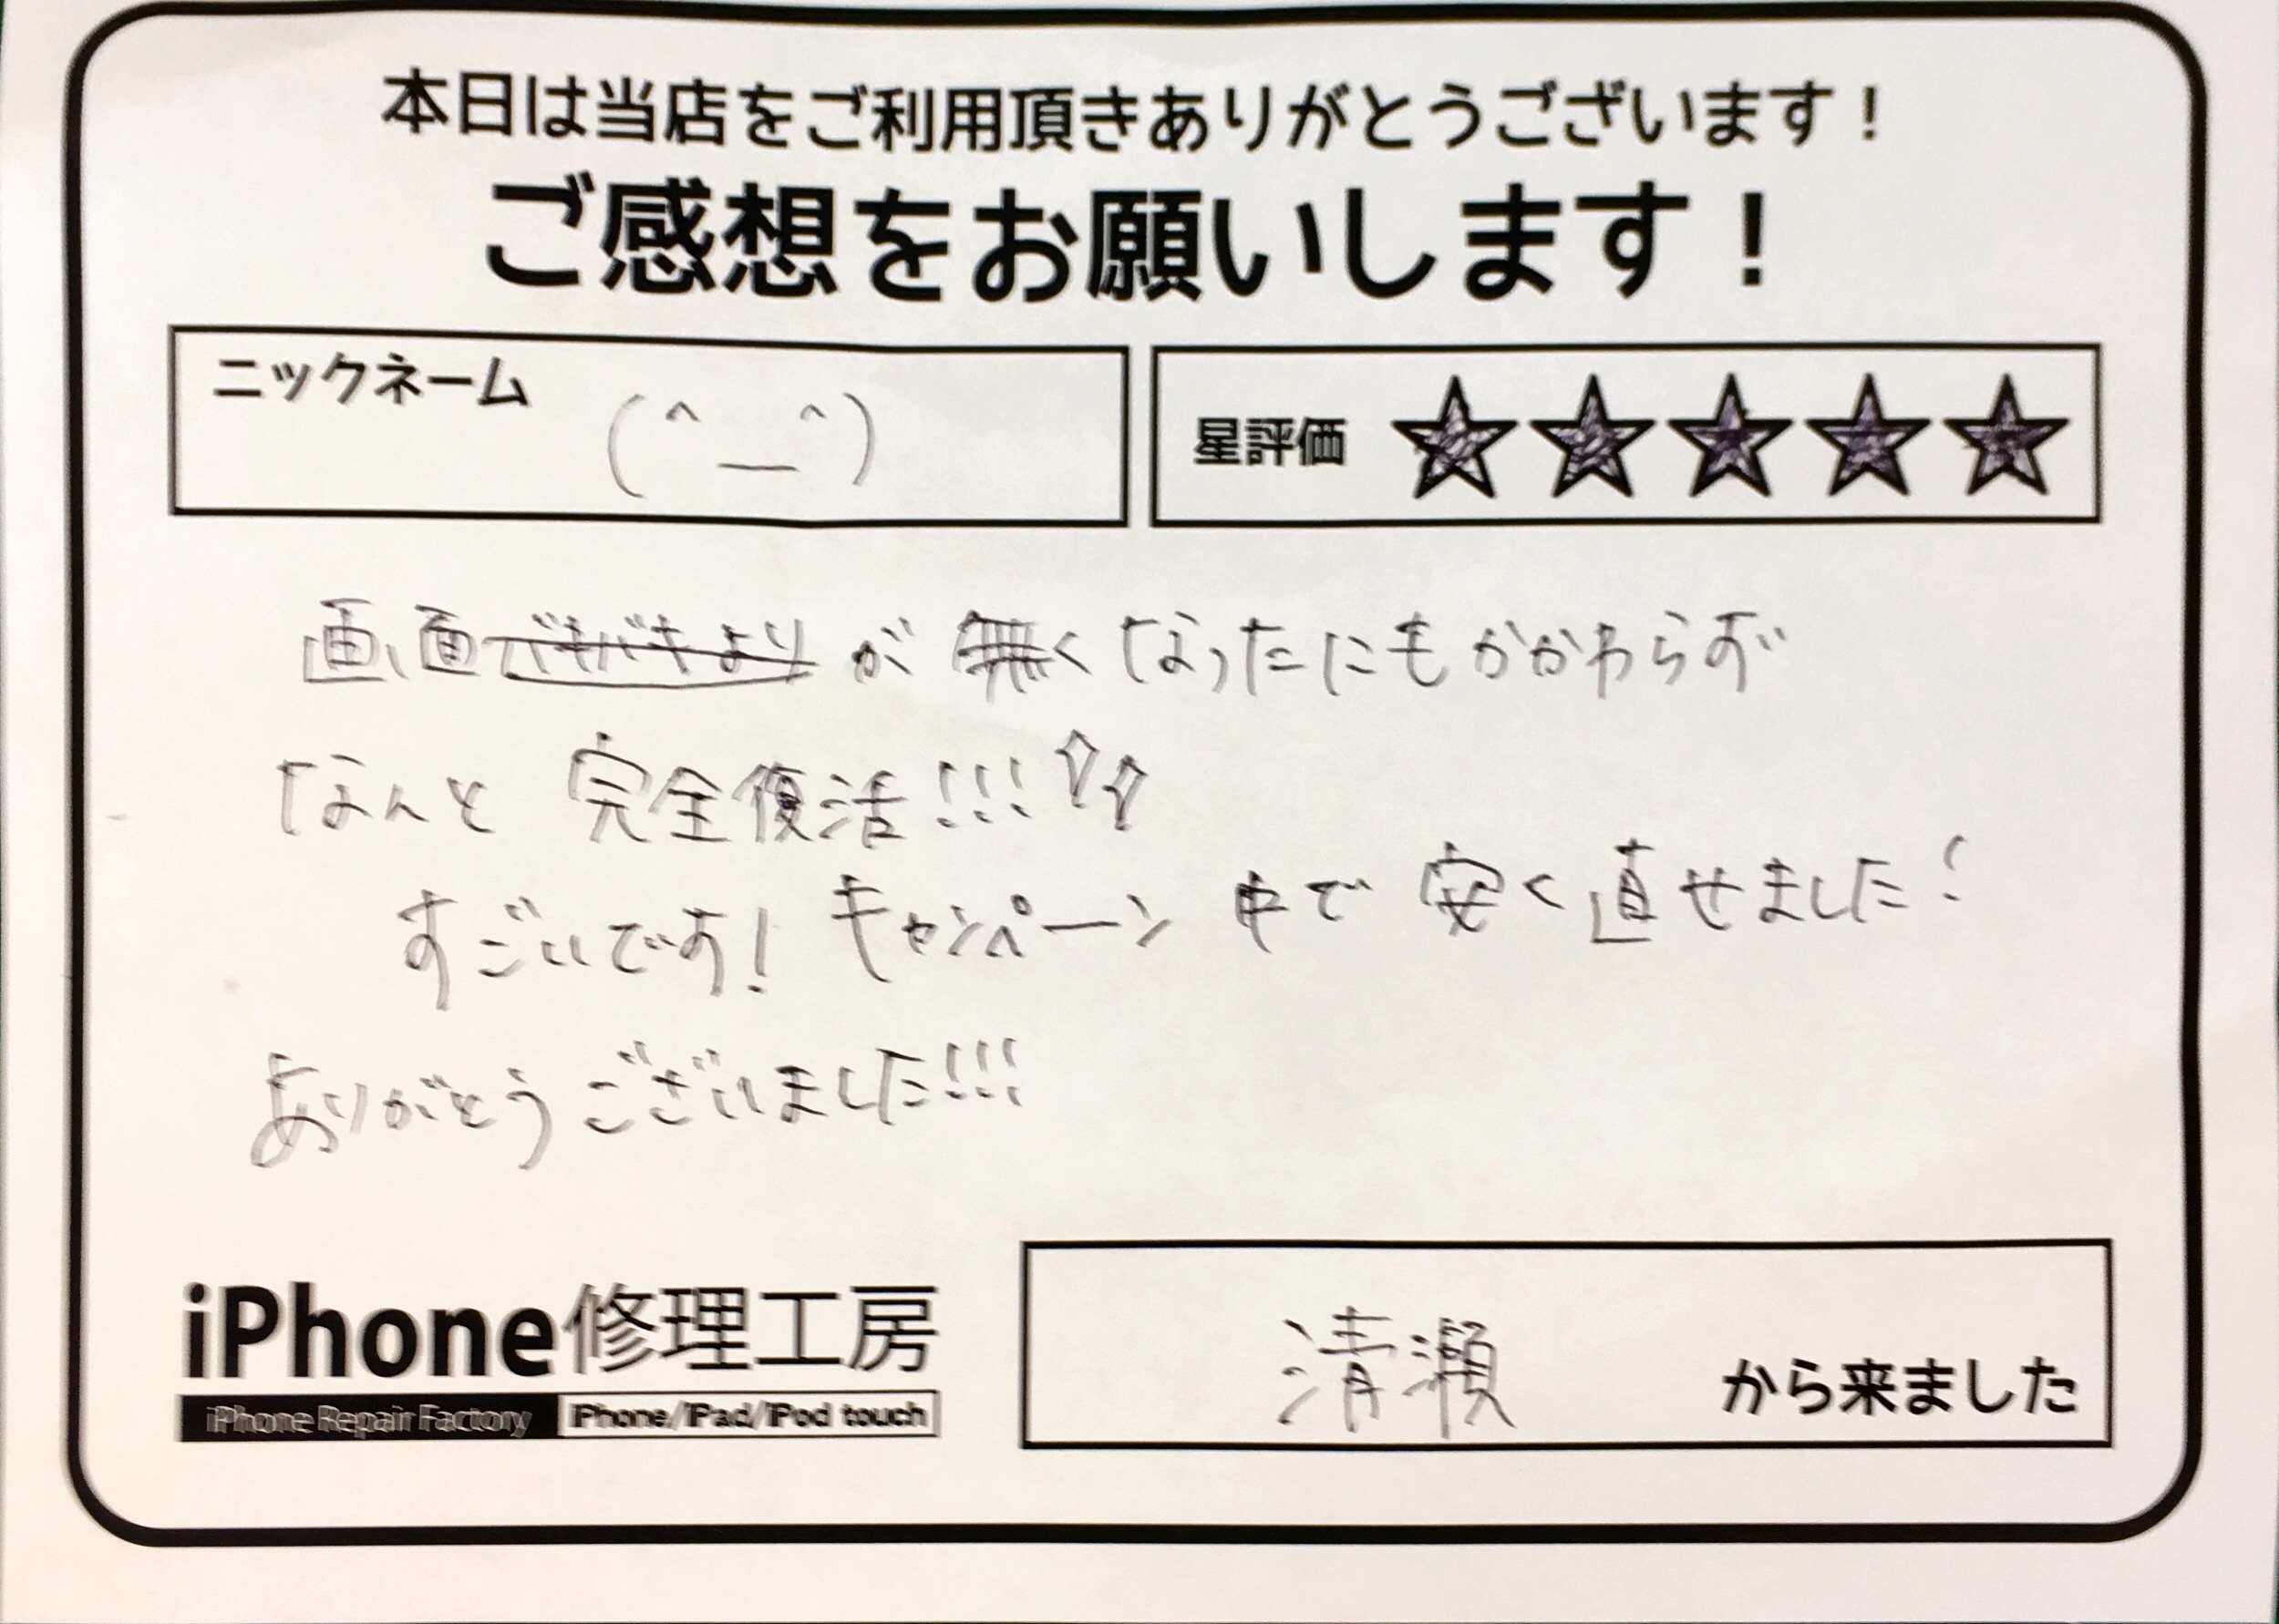 本日は当店をご利用頂きありがとうございます！
ご感想をお願いします！
ニックネーム (^__^)
星評価 ★★★★★
画面が無くなったにもかかわらず
なんと 完全復活!!!
すごいです! キャンペーン中で安く直せました!
ありがとうございました!!!
iPhone修理工房
iPhone Repair Factory iPhone/iPad/iPod touch
清瀬 から来ました